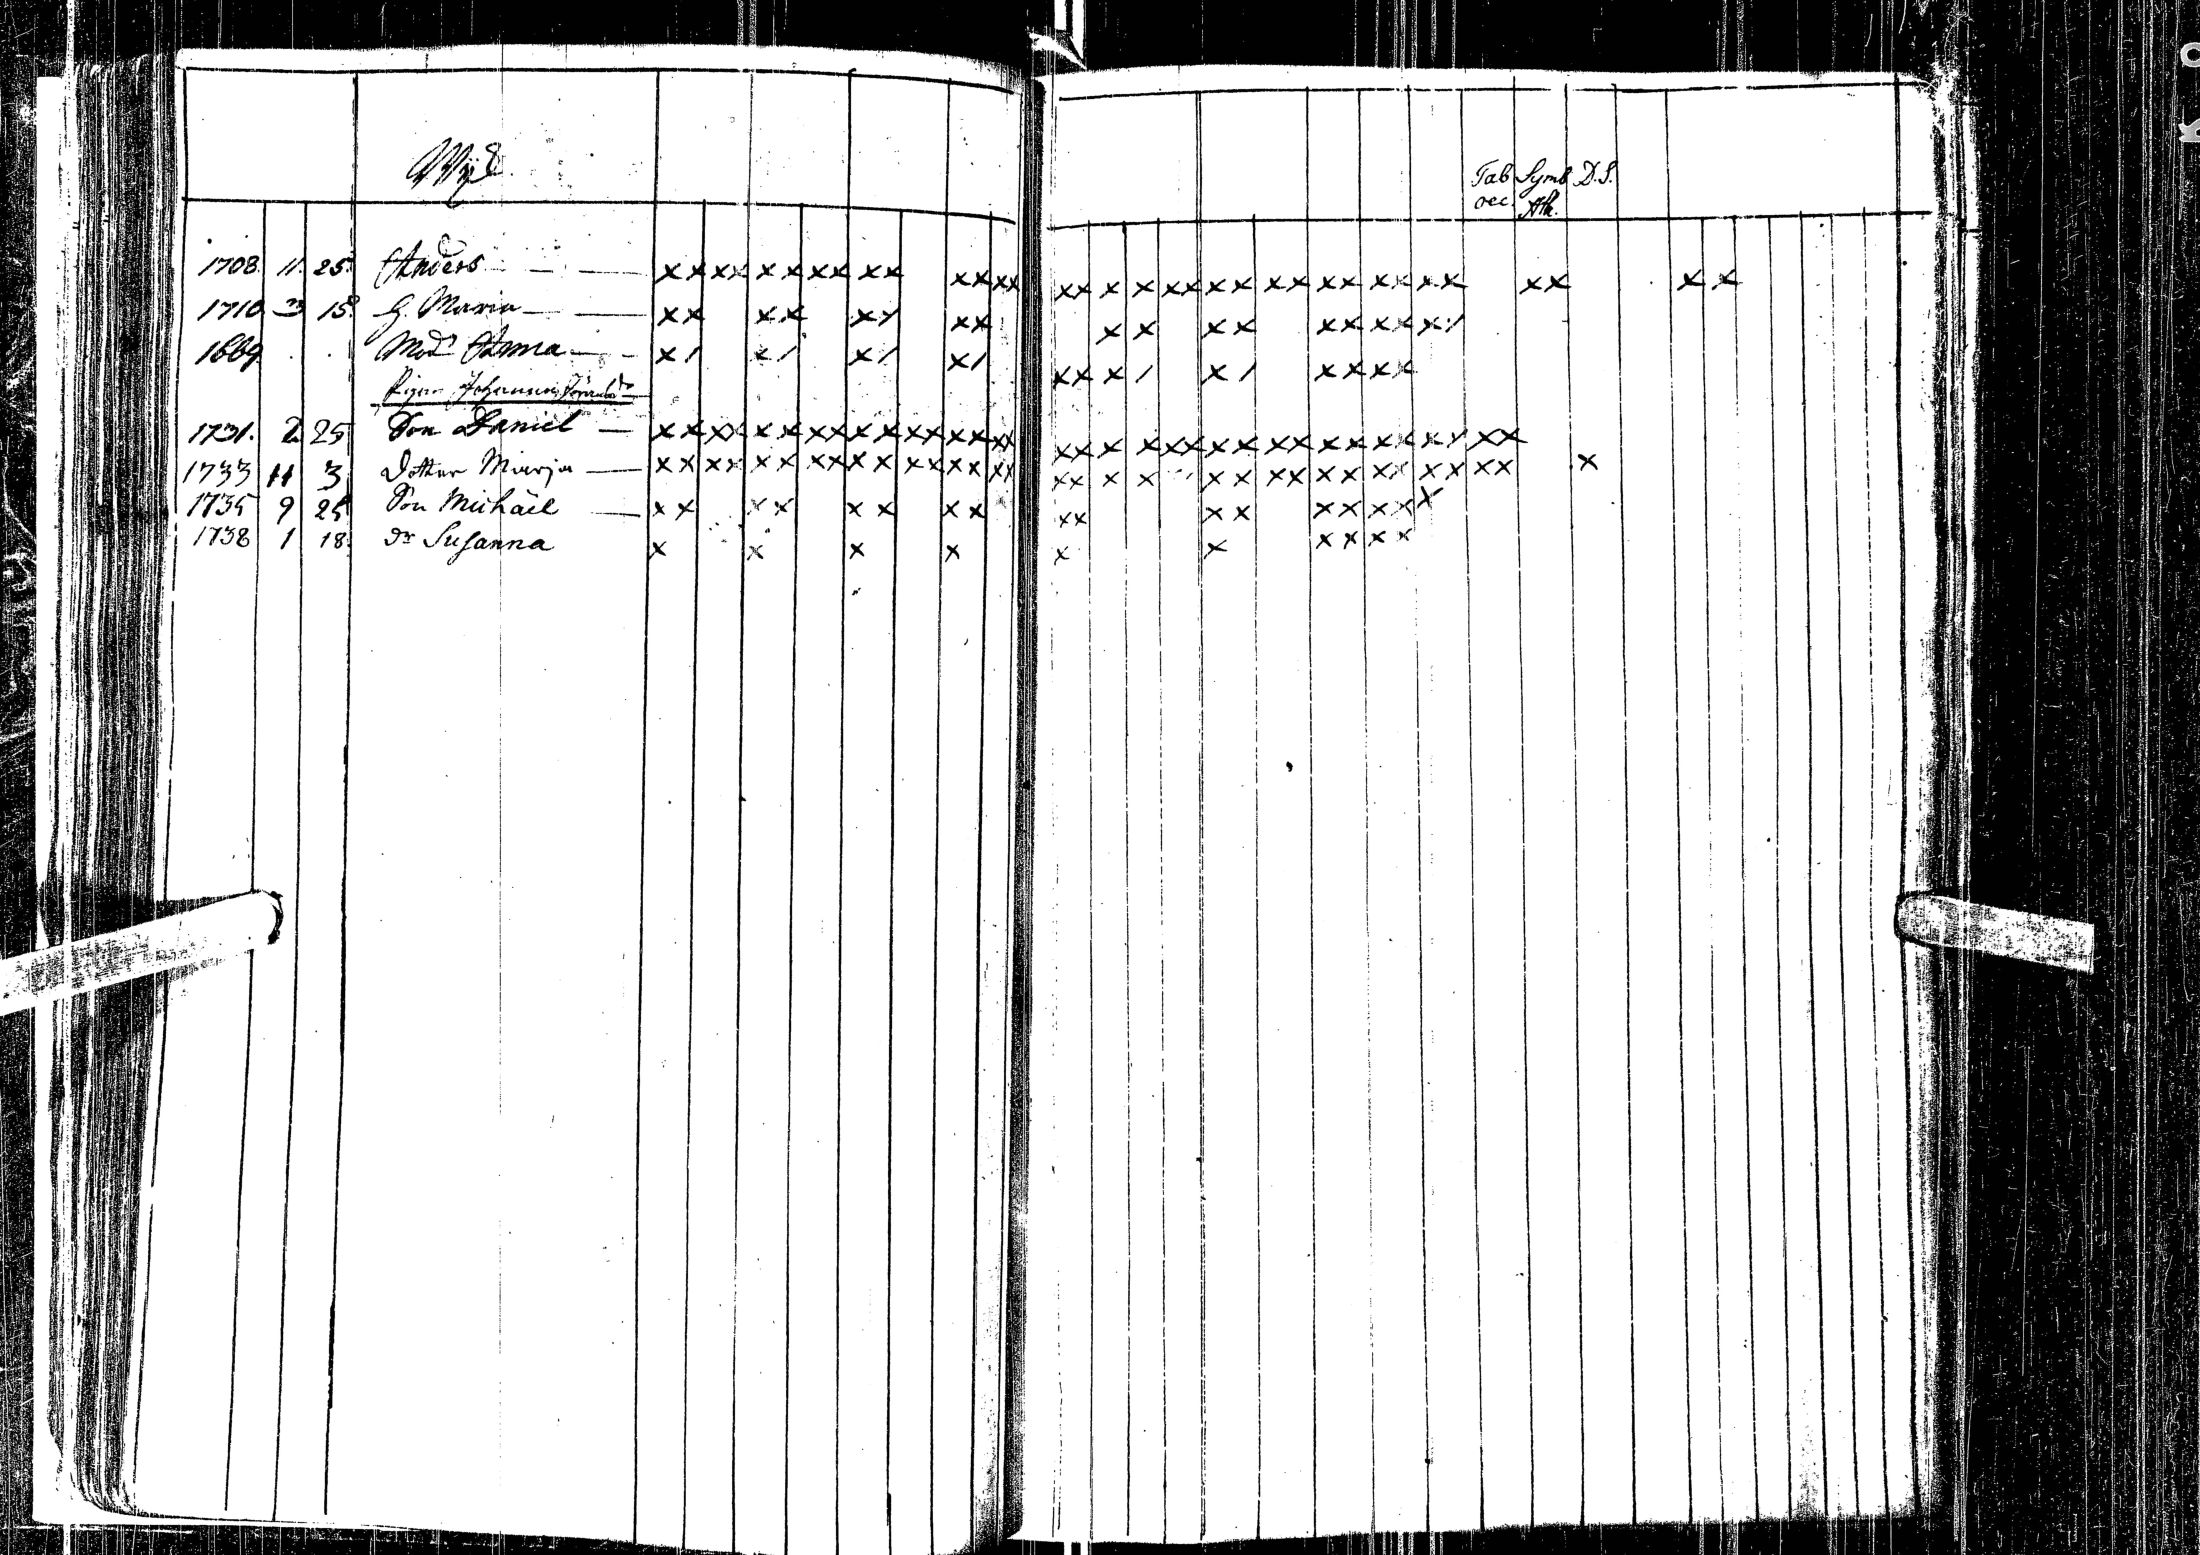 Tab Symb D.S.
oec. Ath.
1708. 11. 25. Anders
1710 15. H. Maria
1669 . . Mod. Anna
Johannes
1731. 2 25 Son Daniel
1733 11 3 Dotter Marja
1735 9 25 Son Michäel
1738 1 18. Dr Susanna